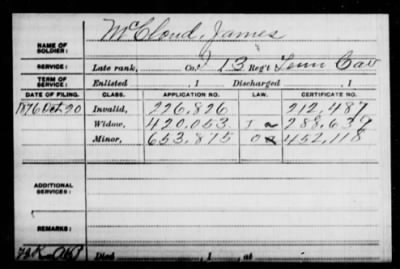 NAME OF SOLDIER: McCloud, James
SERVICE: Late rank, Co. I 13 Reg't Tenn Cav
TERM OF SERVICE: Enlisted , 1 Discharged , 1
DATE OF FILING. CLASS. APPLICATION NO. LAW. CERTIFICATE NO.
1876 Oct 20 Invalid, 226,826 212,487
Widow, 420,053 288,639
Minor, 653,875 452,118
ADDITIONAL SERVICES:
REMARKS:
Died , 1 , at